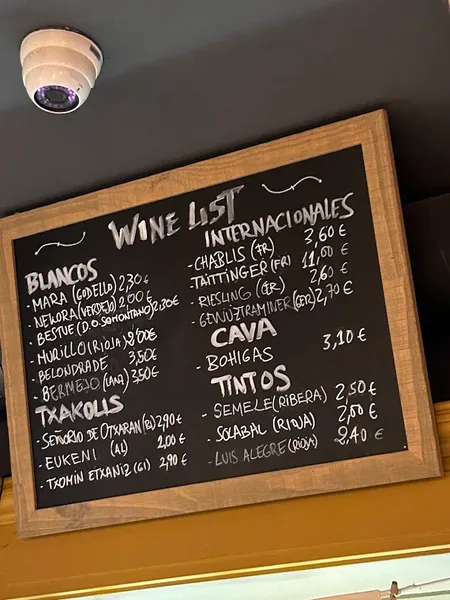 WINE LIST
BLANCOS
- MARA (GODELLO) 2,30 €
- NEKORA (VERDEJO) 2,00 €
- BESTUE (D.O. SOMONTANO) 2,30€
- MURILLO (RIOJA) 2,00€
- BELONDRADE 3,50€
- BERMEJO (LANZ) 3,50€
TXAKOLIS
- SEÑORIO DE OTXARAN (BI) 2,90 €
- EUKENI (AL) 2,00 €
- TXOMIN ETXANIZ (GI) 2,90 €
INTERNACIONALES
- CHABLIS (FR) 3,60 €
- TAITTINGER (FR) 11,00 €
- RIESLING (GER) 2,60 €
- GEWÜZTRAMINER (GER) 2,70 €
CAVA
- BOHIGAS 3,10 €
TINTOS
- SEMELE (RIBERA) 2,50 €
- SOLABAL (RIOJA) 2,50 €
- LUIS ALEGRE (RIOJA) 2,40 €